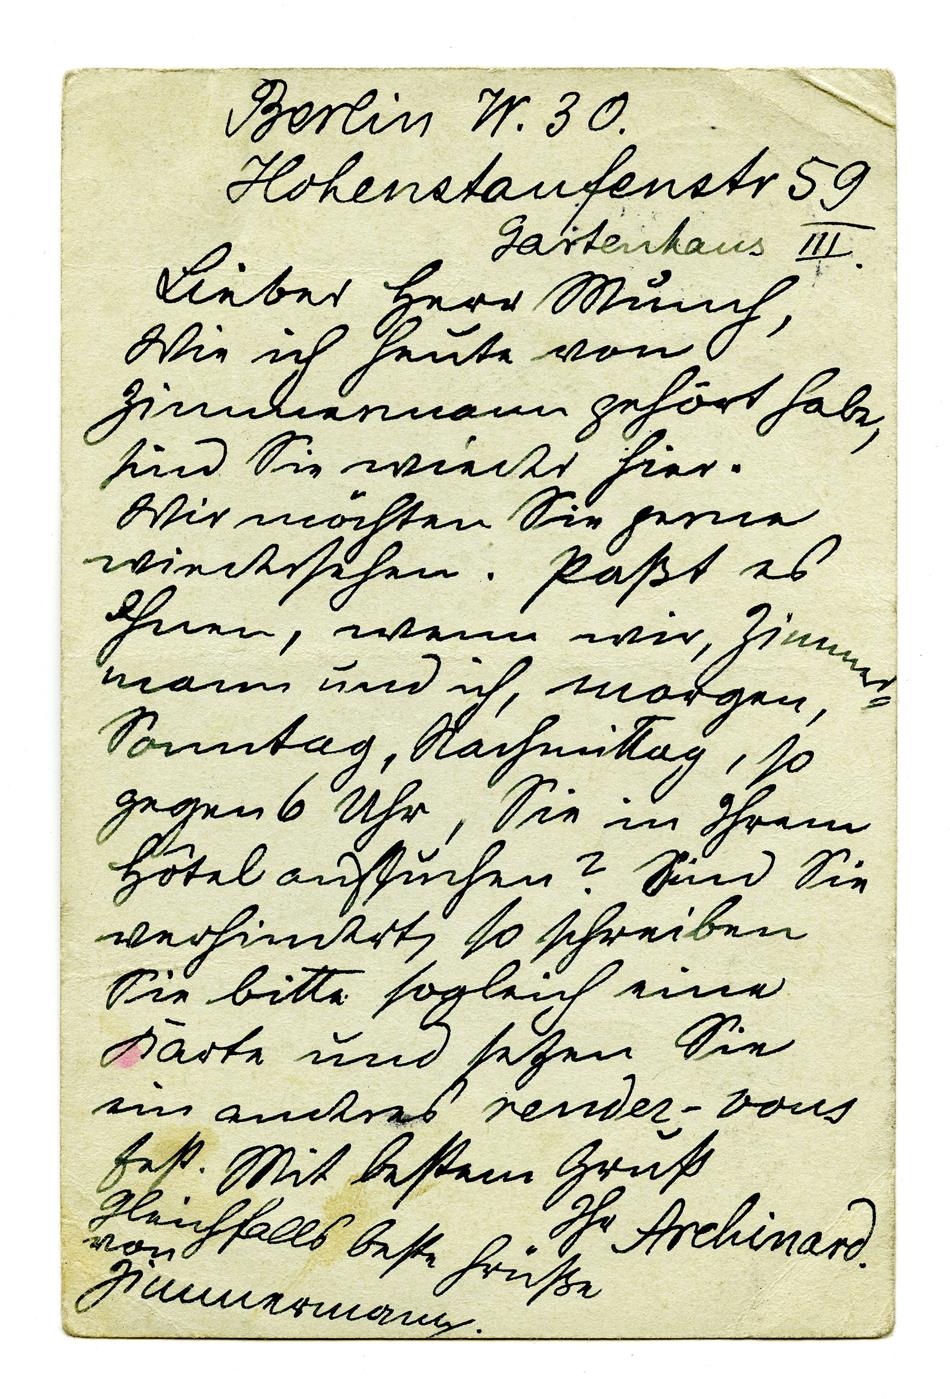 Berlin W. 30.
Hohenstaufenstr 59
Gartenhaus III.
Lieber Herr Munch,
Wie ich heute von
Zimmermann gehört habe,
sind Sie wieder hier.
Wir möchten Sie gerne
wiedersehen. Paßt es
Ihnen, wenn wir, Zimmer=
mann und ich, morgen,
Sonntag, Nachmittag, so
gegen 6 Uhr, Sie in Ihrem
Hôtel aufsuchen? Sind Sie
verhindert, so schreiben
Sie bitte sogleich eine
Karte und setzen Sie
ein anderes rendez-vous
fest. Mit bestem Gruß
Ihr Archinard.
Gleichfalls beste Grüße
von
Zimmermann.